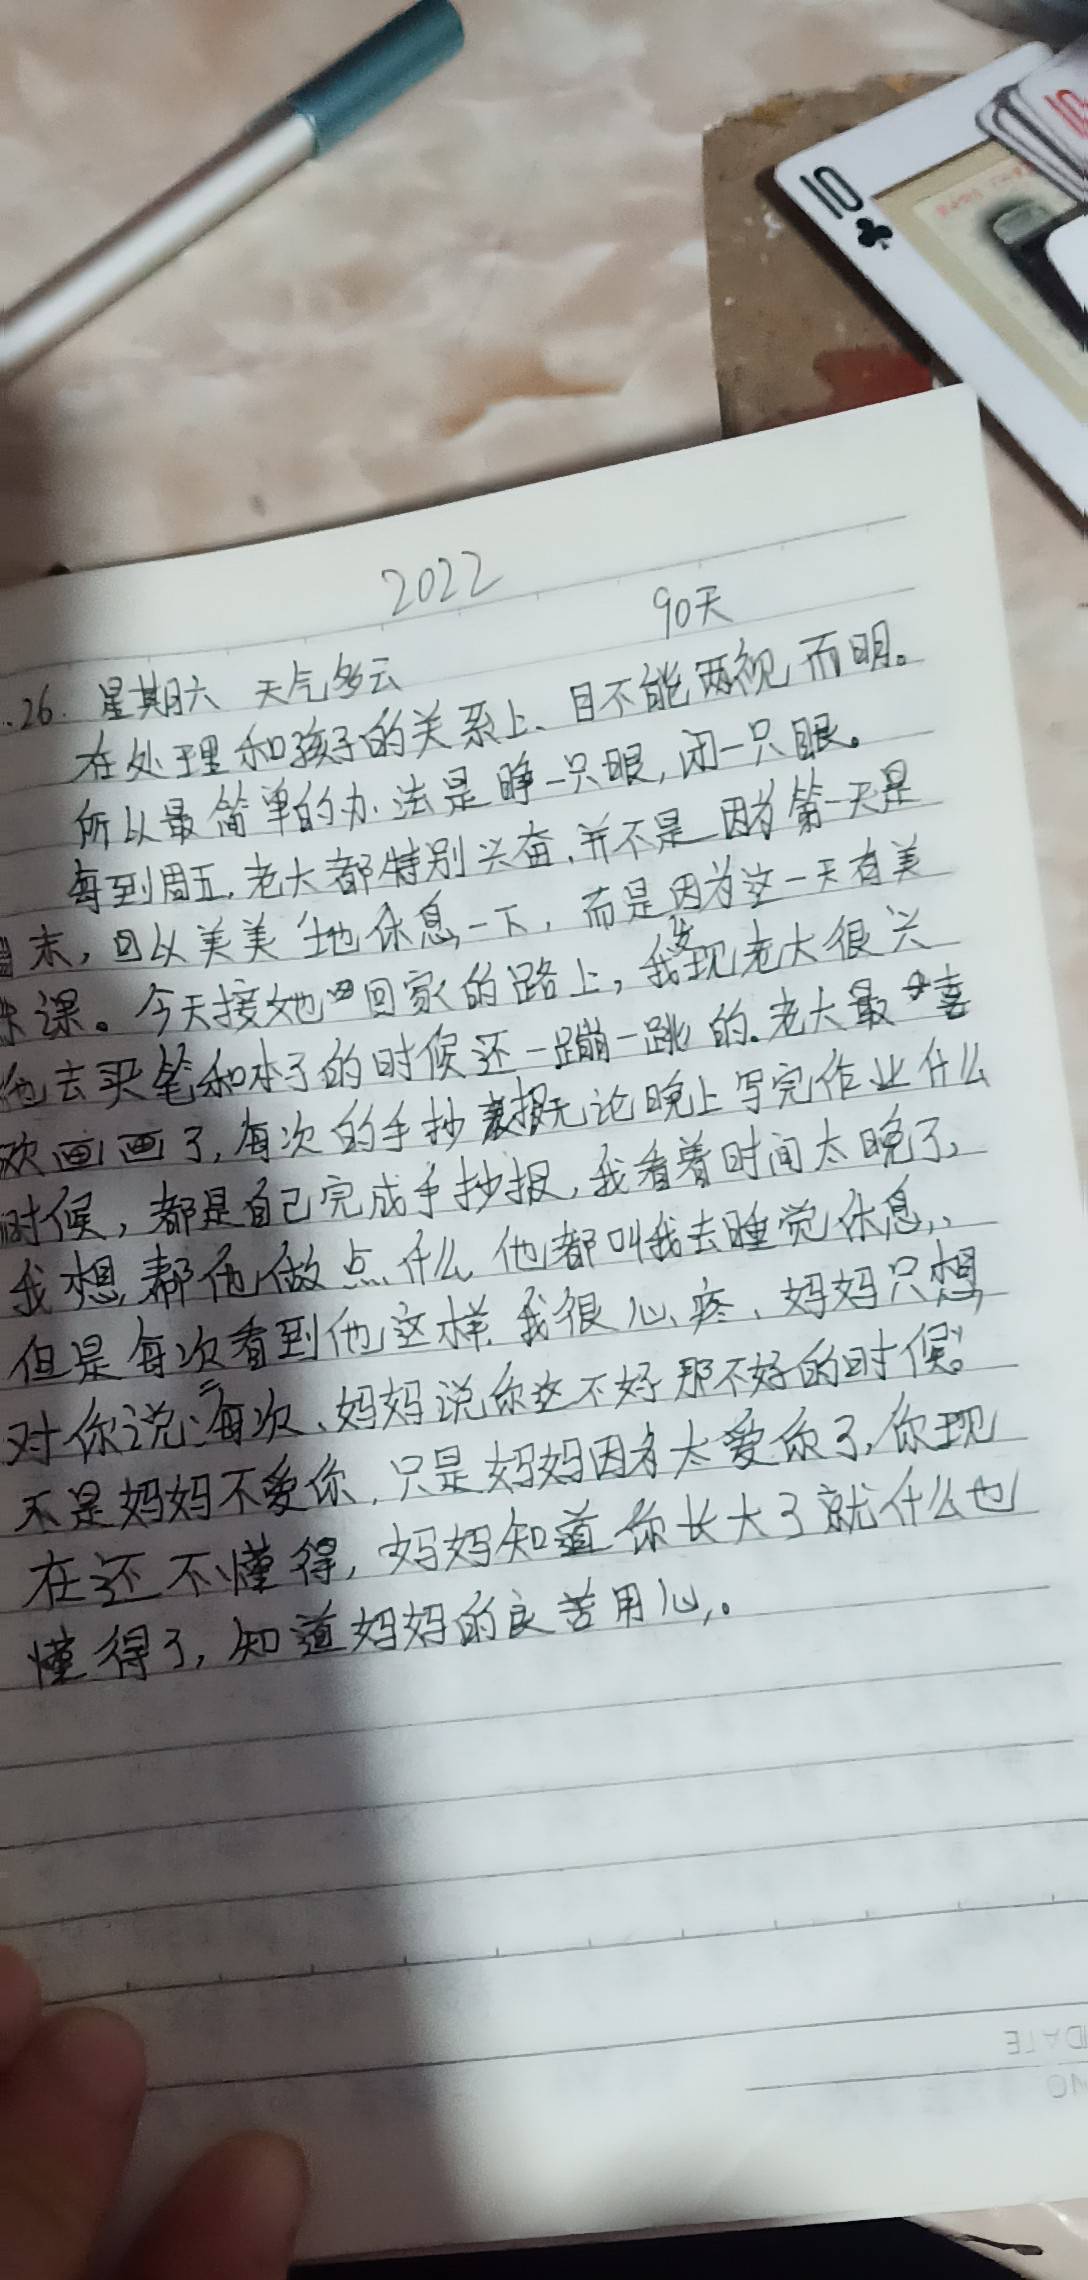 10
10
2022
90天
.26. 星期六 天气多云
在处理和孩子的关系上、目不能两视而明。
所以最简单的办法是睁一只眼,闭一只眼。
每到周五,老大都特别兴奋,并不是因为第一天是
末,可以美美地休息一下,而是因为这一天有美
术课。今天接她回家的路上,我发现老大很兴
他去买笔和本子的时候还一蹦一跳的.老大最喜
欢画画了,每次的手抄报无论晚上写完作业什么
时候,都是自己完成手抄报,我看着时间太晚了,
我想帮他做点什么他都叫我去睡觉休息,
但是每次看到他这样.我很心疼、妈妈只想
对你说:每次、妈妈说你这不好那不好的时候。
不是妈妈不爱你,只是妈妈因为太爱你了,你现
在还不懂得,妈妈知道你长大了就什么也
懂得了,知道妈妈的良苦用心。
DATE
NO